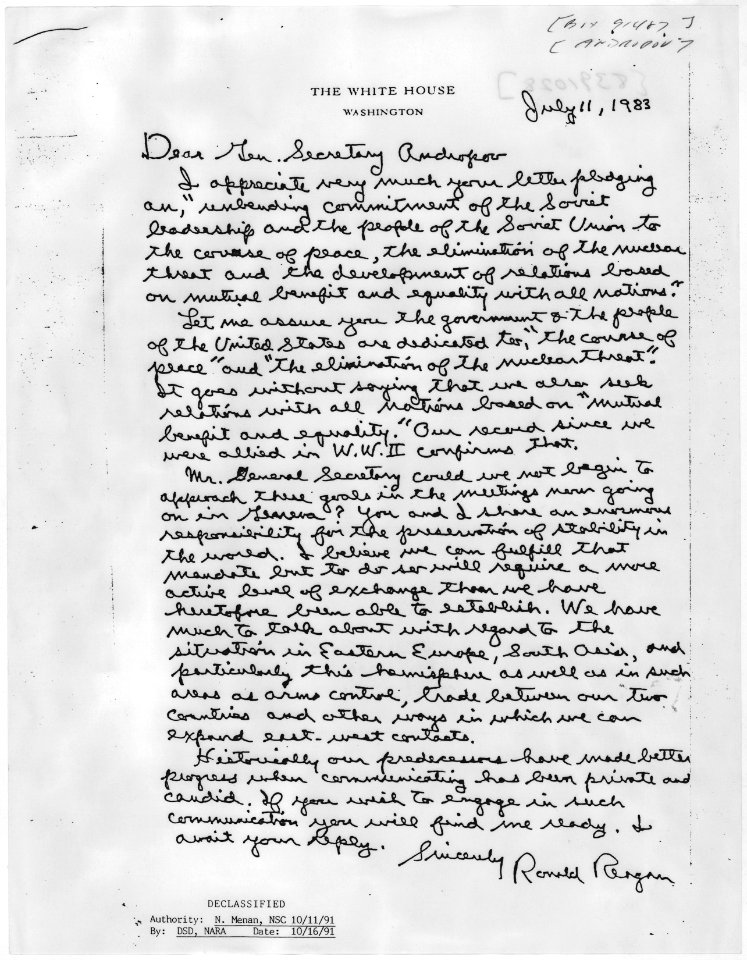 [Bix 91487]
[ANDROPOV]
[8391028]
THE WHITE HOUSE
WASHINGTON
July 11, 1983
Dear Gen. Secretary Andropov
I appreciate very much your letter pledging
an, "unbending commitment of the Soviet
leadership and the people of the Soviet Union to
the course of peace, the elimination of the nuclear
threat and the development of relations based
on mutual benefit and equality with all nations."
Let me assure you the government & the people
of the United States are dedicated to, "the course of
peace" and "the elimination of the nuclear threat".
It goes without saying that we also seek
relations with all nations based on "mutual
benefit and equality." Our record since we
were allied in W.W.II confirms that.
Mr. General Secretary could we not begin to
approach these goals in the meetings now going
on in Geneva? You and I share an enormous
responsibility for the preservation of stability in
the world. I believe we can fulfill that
mandate but to do so will require a more
active level of exchange than we have
heretofore been able to establish. We have
much to talk about with regard to the
situation in Eastern Europe, South Asia, and
particularly this hemisphere as well as in such
areas as arms control, trade between our two
countries and other ways in which we can
expand east-west contacts.
Historically our predecessors have made better
progress when communicating has been private and
candid. If you wish to engage in such
communication you will find me ready. I
await your reply.
Sincerely
Ronald Reagan
DECLASSIFIED
Authority: N. Menan, NSC 10/11/91
By: DSD, NARA Date: 10/16/91